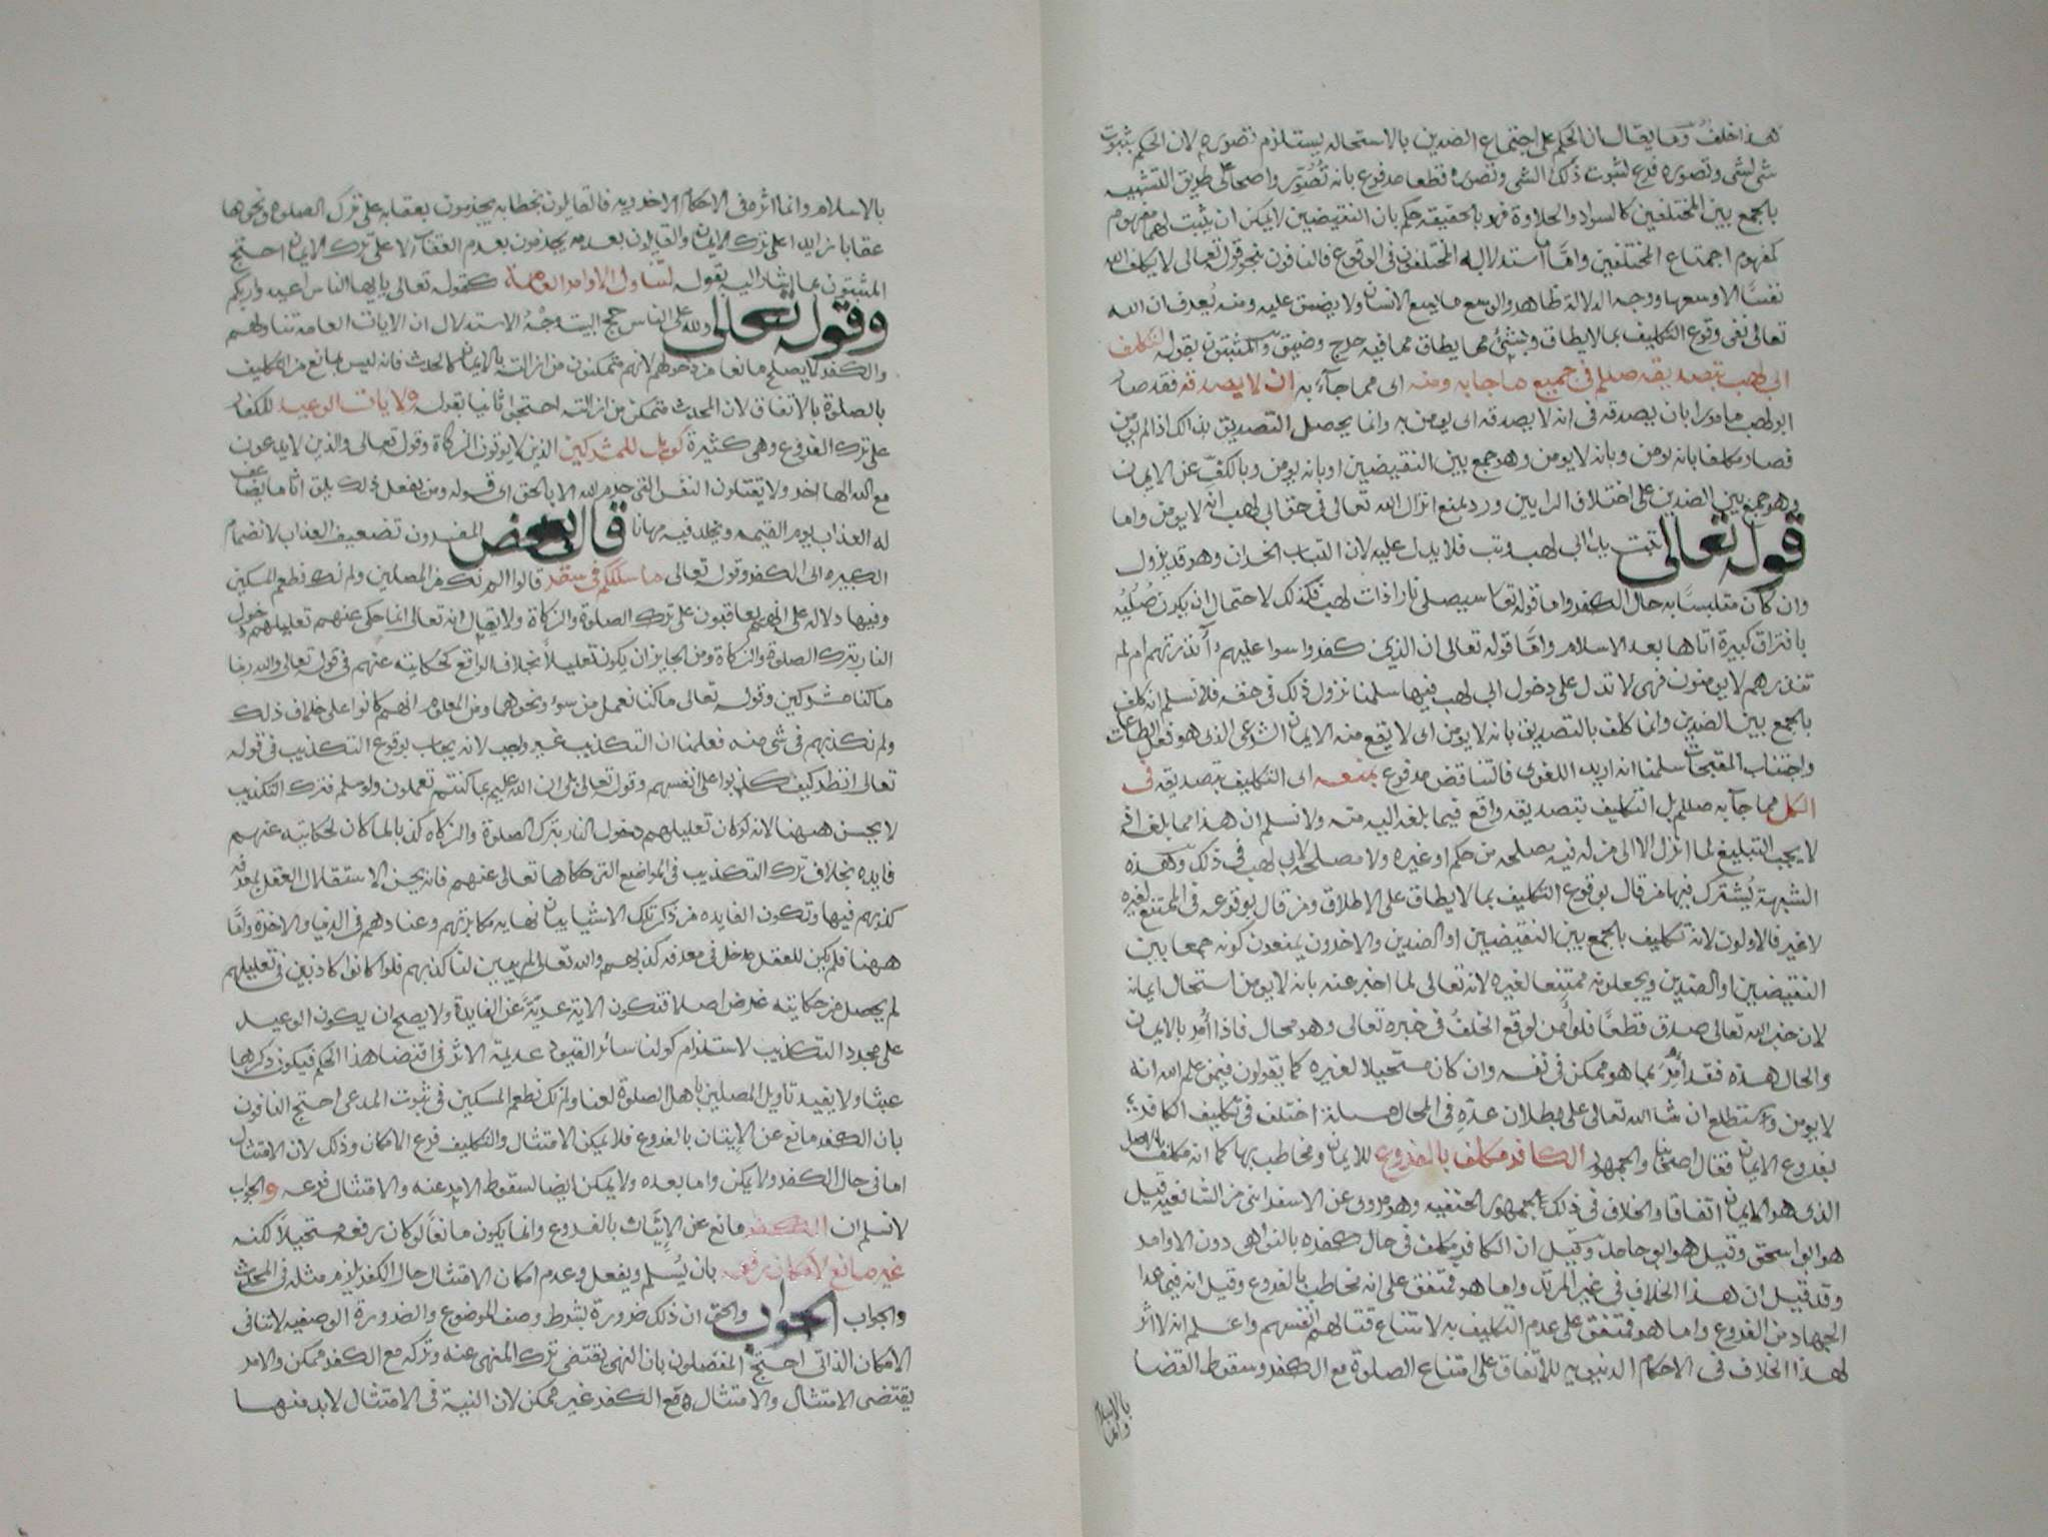 هذا خلف وما يقال ان الحكم على اجتماع الضدين بالاستحاله يستلزم تصوره لان الحكم بثبوت
شى لشى وتصوره فرع لثبوت ذلك الشى وتصره قطعا مدفوع بانه تُصُوّر واضحا على طريق التشبيه
بالجمع بين المختلفين كالسواد والحلاوة فهو بالحقيقه حكم بان النقيضين لا يمكن ان يثبت لهما مفهوم
كمفهوم اجتماع المختلفين وامّا استدلاله المختلفون فى الوقوع فالنافون بنحو قوله تعالى لا يكلف الله
نفسًا الا وسعها ووجه الدلالة ظاهر والوسع ما يسع الانسان ولا يضيق عليه ومنه يُعرف ان الله
تعالى نفى وقوع التكليف بما لا يطاق وبشئ مما يطاق مما فيه حرج وضيق والمثبتون بقوله لتكلف
ابى لهب بتصديقه صللم فى جميع ما جا به ومنه اى مما جآء به ان لا يصدقه فقد صار
ابو لهب مامورا بان يصدقه فى انه لا يصدقه اى يومن به وانما يحصل التصديق بذلك اذا لم يومن
فصار مكلفا بانه يومن وبانه لا يومن وهو جمع بين النقيضين او بانه يومن وبالكفّ عن الايمان
وهو جمع بين الضدين على اختلاف الرايين ورد بمنع انزال الله تعالى فى حق ابى لهب انه لا يومن واما
قوله تعالى تبت يدا ابى لهب وتب فلا يدل عليه لان التباب الخسران وهو قد يزول
وان كان متلبسًا به حال الكفر واما قوله تعا سيصلى نارا ذات لهب فكذلك لاحتمال ان يكون صُلِيّه
باقتراف كبيرة اتاها بعد الاسلام وامّا قوله تعالى ان الذين كفروا سوا عليهم أأنذرتهم ام لم
تنذرهم لا يومنون فهى لا تدل على دخول ابى لهب فيها سلمنا نزول ذلك فى حقه فلا نسلم انه كلف
بالجمع بين الضدين وانما كلف بالتصديق بانه لا يومن اى لا يقع منه الايمان الشرعى الذى هو فعل الطاعات
واجتناب المقبحات سلمنا انه اريد اللغوى فالتناقض مدفوع بمنعه اى التكليف بتصديقه فى
الكل مما جآ به صللم بل التكليف بتصديقه واقع فيما بلغه اليه منه ولا نسلم ان هذا مما بلغه اذ
لا يجب التبليغ لما انزل الا الى من له فيه مصلحه من حكم او غيره ولا مصلحه لابى لهب فى ذلك وهذه
الشبهة يُشترك فيها من قال بوقوع التكليف بما لا يطاق على الاطلاق ومن قال بوقوعه فى الممتنع لغيره
لا غير فالاولون لانه تكليف بالجمع بين النقيضين او الضدين والاخرون يمنعون كونه جمعا بين
النقيضين او الضدين ويجعلونه ممتنعا لغيره لانه تعالى لما اخبر عنه بانه لا يومن استحال ايمانه
لان خبر الله تعالى صدق قطعًا فلو أمن لوقع الخلف فى خبره تعالى وهو محال فاذا أُمر بالايمان
والحال هذه فقد أُمِرَ بما هو ممكن فى نفسه وان كان مستحيلا لغيره كما يقولون فيمن علم الله انه
لا يومن وستطلع ان شا الله تعالى على بطلان عدّهِ فى المحال مسئلة اختلف فى تكليف الكافر
بفروع الايمان فقال اصحابنا والجمهور الكافر مكلف بالفروع للايمان ومخاطب بها كما انه مكلف بالاصل
الذى هو الايمان اتفاقا والخلاف فى ذلك لجمهور الحنفيه وهو مروى عن الاسفراينى من الشافعيه قيل
هو ابو اسحق وقيل هو ابو حامد وقيل ان الكافر مكلف فى حال كفره بالنواهى دون الاوامر
وقد قيل ان هذا الخلاف فى غير المرتد واما هو فمتفق على انه مخاطب بالفروع وقيل انه فيما عدا
الجهاد من الفروع واما هو فمتفق على عدم التكليف به لامتناع قتالهم انفسهم واعلم انه لا اثر
لهذا الخلاف فى الاحكام الدنيويه للاتفاق على امتناع الصلوة مع الكفر وسقوط القضا
بالاسلام
وانما
بالاسلام وانما اثره فى الاحكام الاخرويه فالقايلون بخطابه يجزمون بعقابه على ترك الصلوه ونحوها
عقابا زايدا على ترك الايمان والقايلون بعدمه يجزمون بعدم العقاب الا على ترك الايمان احتج
المثبتون بما اشار اليه بقوله لتناول الاوامر العامة كقوله تعالى يايها الناس اعبدوا ربكم
وقوله تعالى ولله على الناس حج البيت وجْهُ الاستدلال ان الايات العامه تتناولهم
والكفر لا يصلح مانعا من دخولهم لانهم متمكنون من ازالته بالايمان كالحدث فانه ليس بمانع من التكليف
بالصلوة بالاتفاق لان المحدث متمكن من ازالته احتجوا ثانيا بقوله ولايات الوعيد للكفار
على ترك الفروع وهى كثيرة كويل للمشركين الذين لا يوتون الزكاة وقوله تعالى والذين لا يدعون
مع الله الها اخر ولا يقتلون النفس التى حرم الله الا بالحق الى قوله ومن يفعل ذلك يلق اثاما يضاعف
له العذاب يوم القيمه ويخلد فيه مهانا قال بعض المفسرون تضعيف العذاب لانضمام
الكبيره الى الكفر وقوله تعالى ما سلككم فى سقر قالوا لم نك من المصلين ولم نك نطعم المسكين
وفيها دلاله على انهم يعاقبون على ترك الصلوة والزكاة ولا يقال انه تعالى انما حكى عنهم تعليلهم دخول
النار بترك الصلوة والزكاة ومن الجايز ان يكون تعليلًا بخلاف الواقع كحكايته عنهم فى قوله تعالى والله ربنا
ما كنا مشركين وقوله تعالى ما كنا نعمل من سوء ونحوهما ومن المعلوم انهم كانوا على خلاف ذلك
ولم نكذبهم فى شى منه فعلمنا ان التكذيب غير واجب لانه يجاب بوقوع التكذيب فى قوله
تعالى انظر كيف كذبوا على انفسهم وقوله تعالى بلى ان الله عليم بما كنتم تعملون ولو سلم فترك التكذيب
لا يحسن ههنا لانه لو كان تعليلهم دخول النار بترك الصلوة والزكاه كذبا لما كان لحكايته عنهم
فايده بخلاف ترك التكذيب فى المواضع التى حكاها تعالى عنهم فانه يحسن لاستقلال العقل بمعرفه
كذبهم فيها وتكون الفايده من ذكر تلك الاشيا بيان نهايه مكابرتهم وعنادهم فى الدنيا والاخرة وامّا
ههنا فلم يكن للعقل مدخل فى معرفه كذبهم والله تعالى لم يبين لنا كذبهم فلو كانوا كاذبين فى تعليلهم
لم يحصل من حكايته غرض اصلا فتكون الاية عريّةً عن الفايدة ولا يصح ان يكون الوعيد
على مجرد التكذيب لاستلزام كون سائر القيود عديمة الاثر فى اقتضا هذا الحكم فيكون ذكرها
عبثا ولا يفيد تاويل المصلين باهل الصلوة لغنا ولم نك نطعم المسكين فى ثبوت المدعى احتج النافون
بان الكفر مانع عن الاِتيان بالفروع فلا يمكن الامتثال والتكليف فرع الامكان وذلك لان الامتثال
اما فى حال الكفر ولا يمكن واما بعده ولا يمكن ايضا لسقوط الامر عنه والامتثال فرعه والجواب
لا نسلم ان الكفر مانع عن الاِتيان بالفروع وانما يكون مانعًا لو كان رفعه مستحيلًا لكنه
غير مانع لامكان رفعه بان يُسلم ويفعل وعدم امكان الامتثال حال الكفر يلزم مثله فى المحدث
والجواب الجواب والحق ان ذلك ضرورة لشرط وصف الموضوع والضرورة الوصفيه لا تنافى
الامكان الذاتى احتج المفصلون بان النهى يقتضى ترك المنهى عنه وتركه مع الكفر ممكن والامر
يقتضى الامتثال والامتثال مع الكفر غير ممكن لان النية فى الامتثال لابد منها